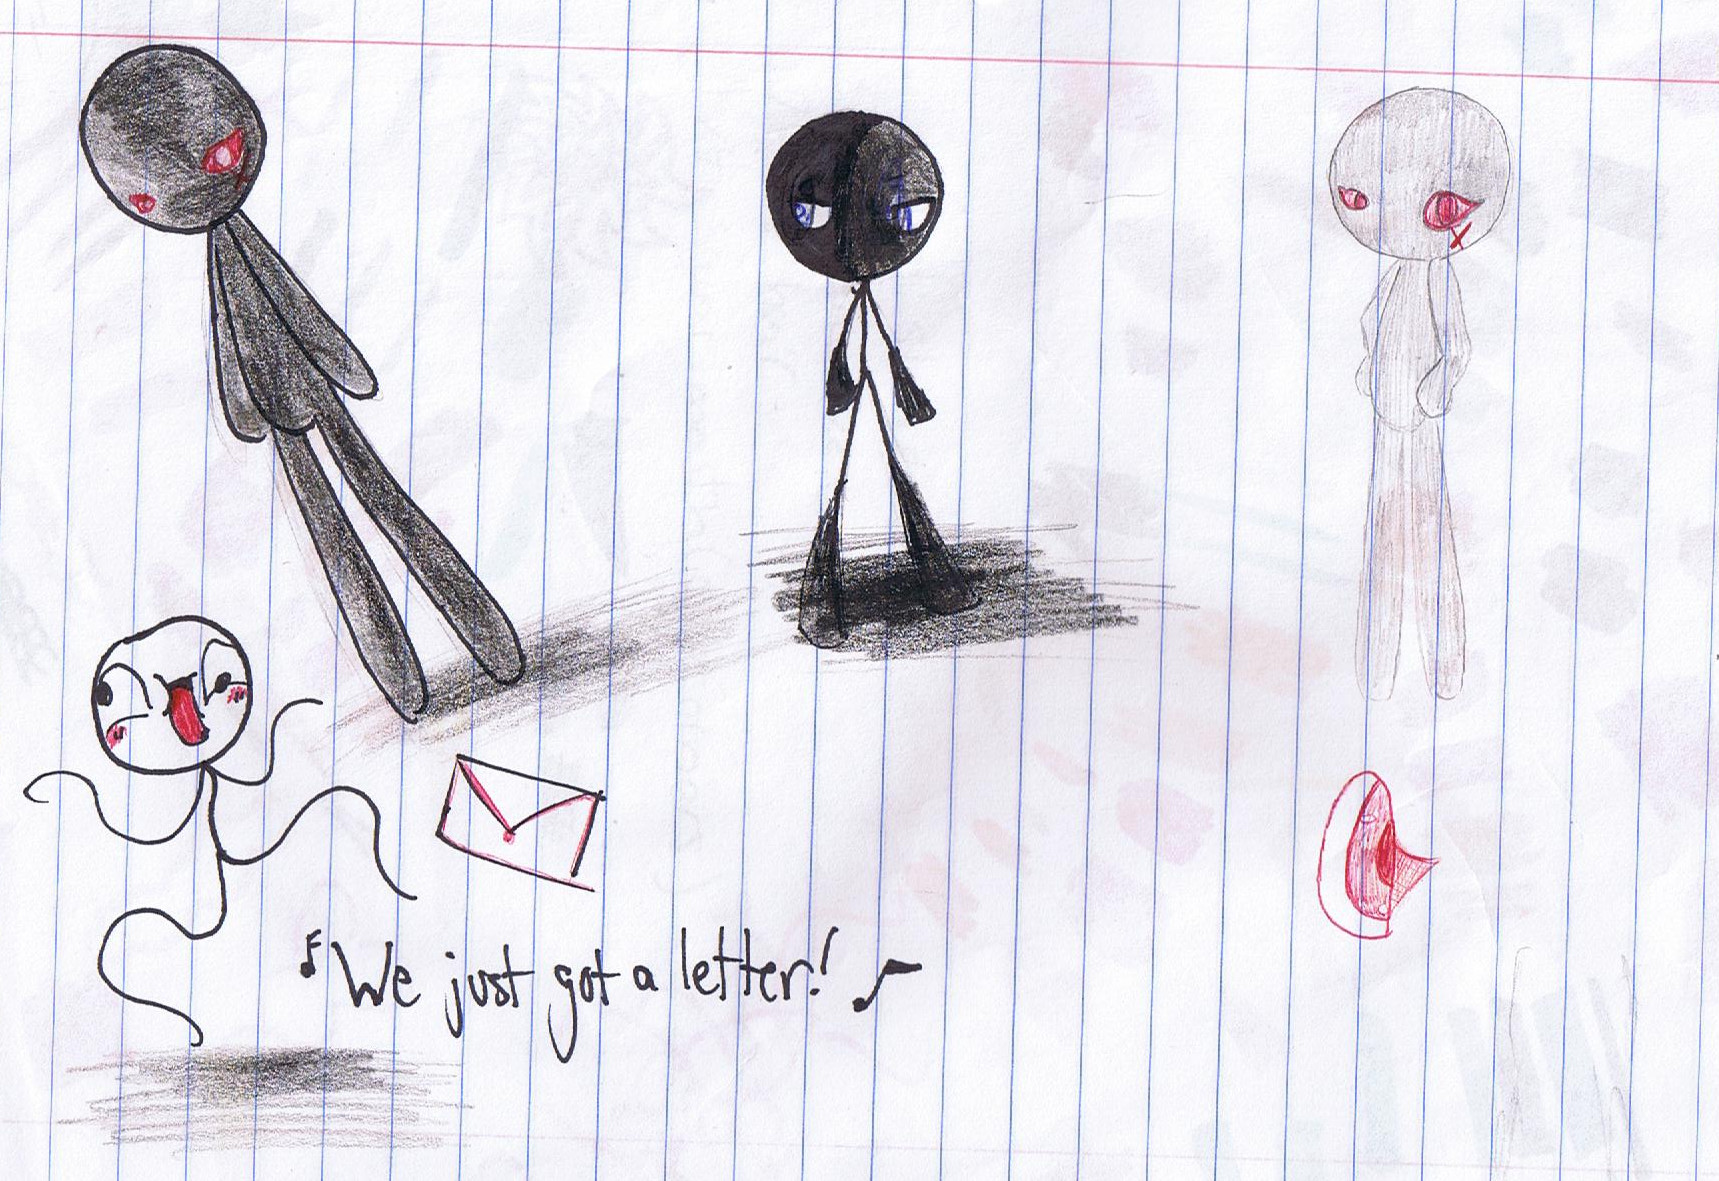 ♪We just got a letter!♪